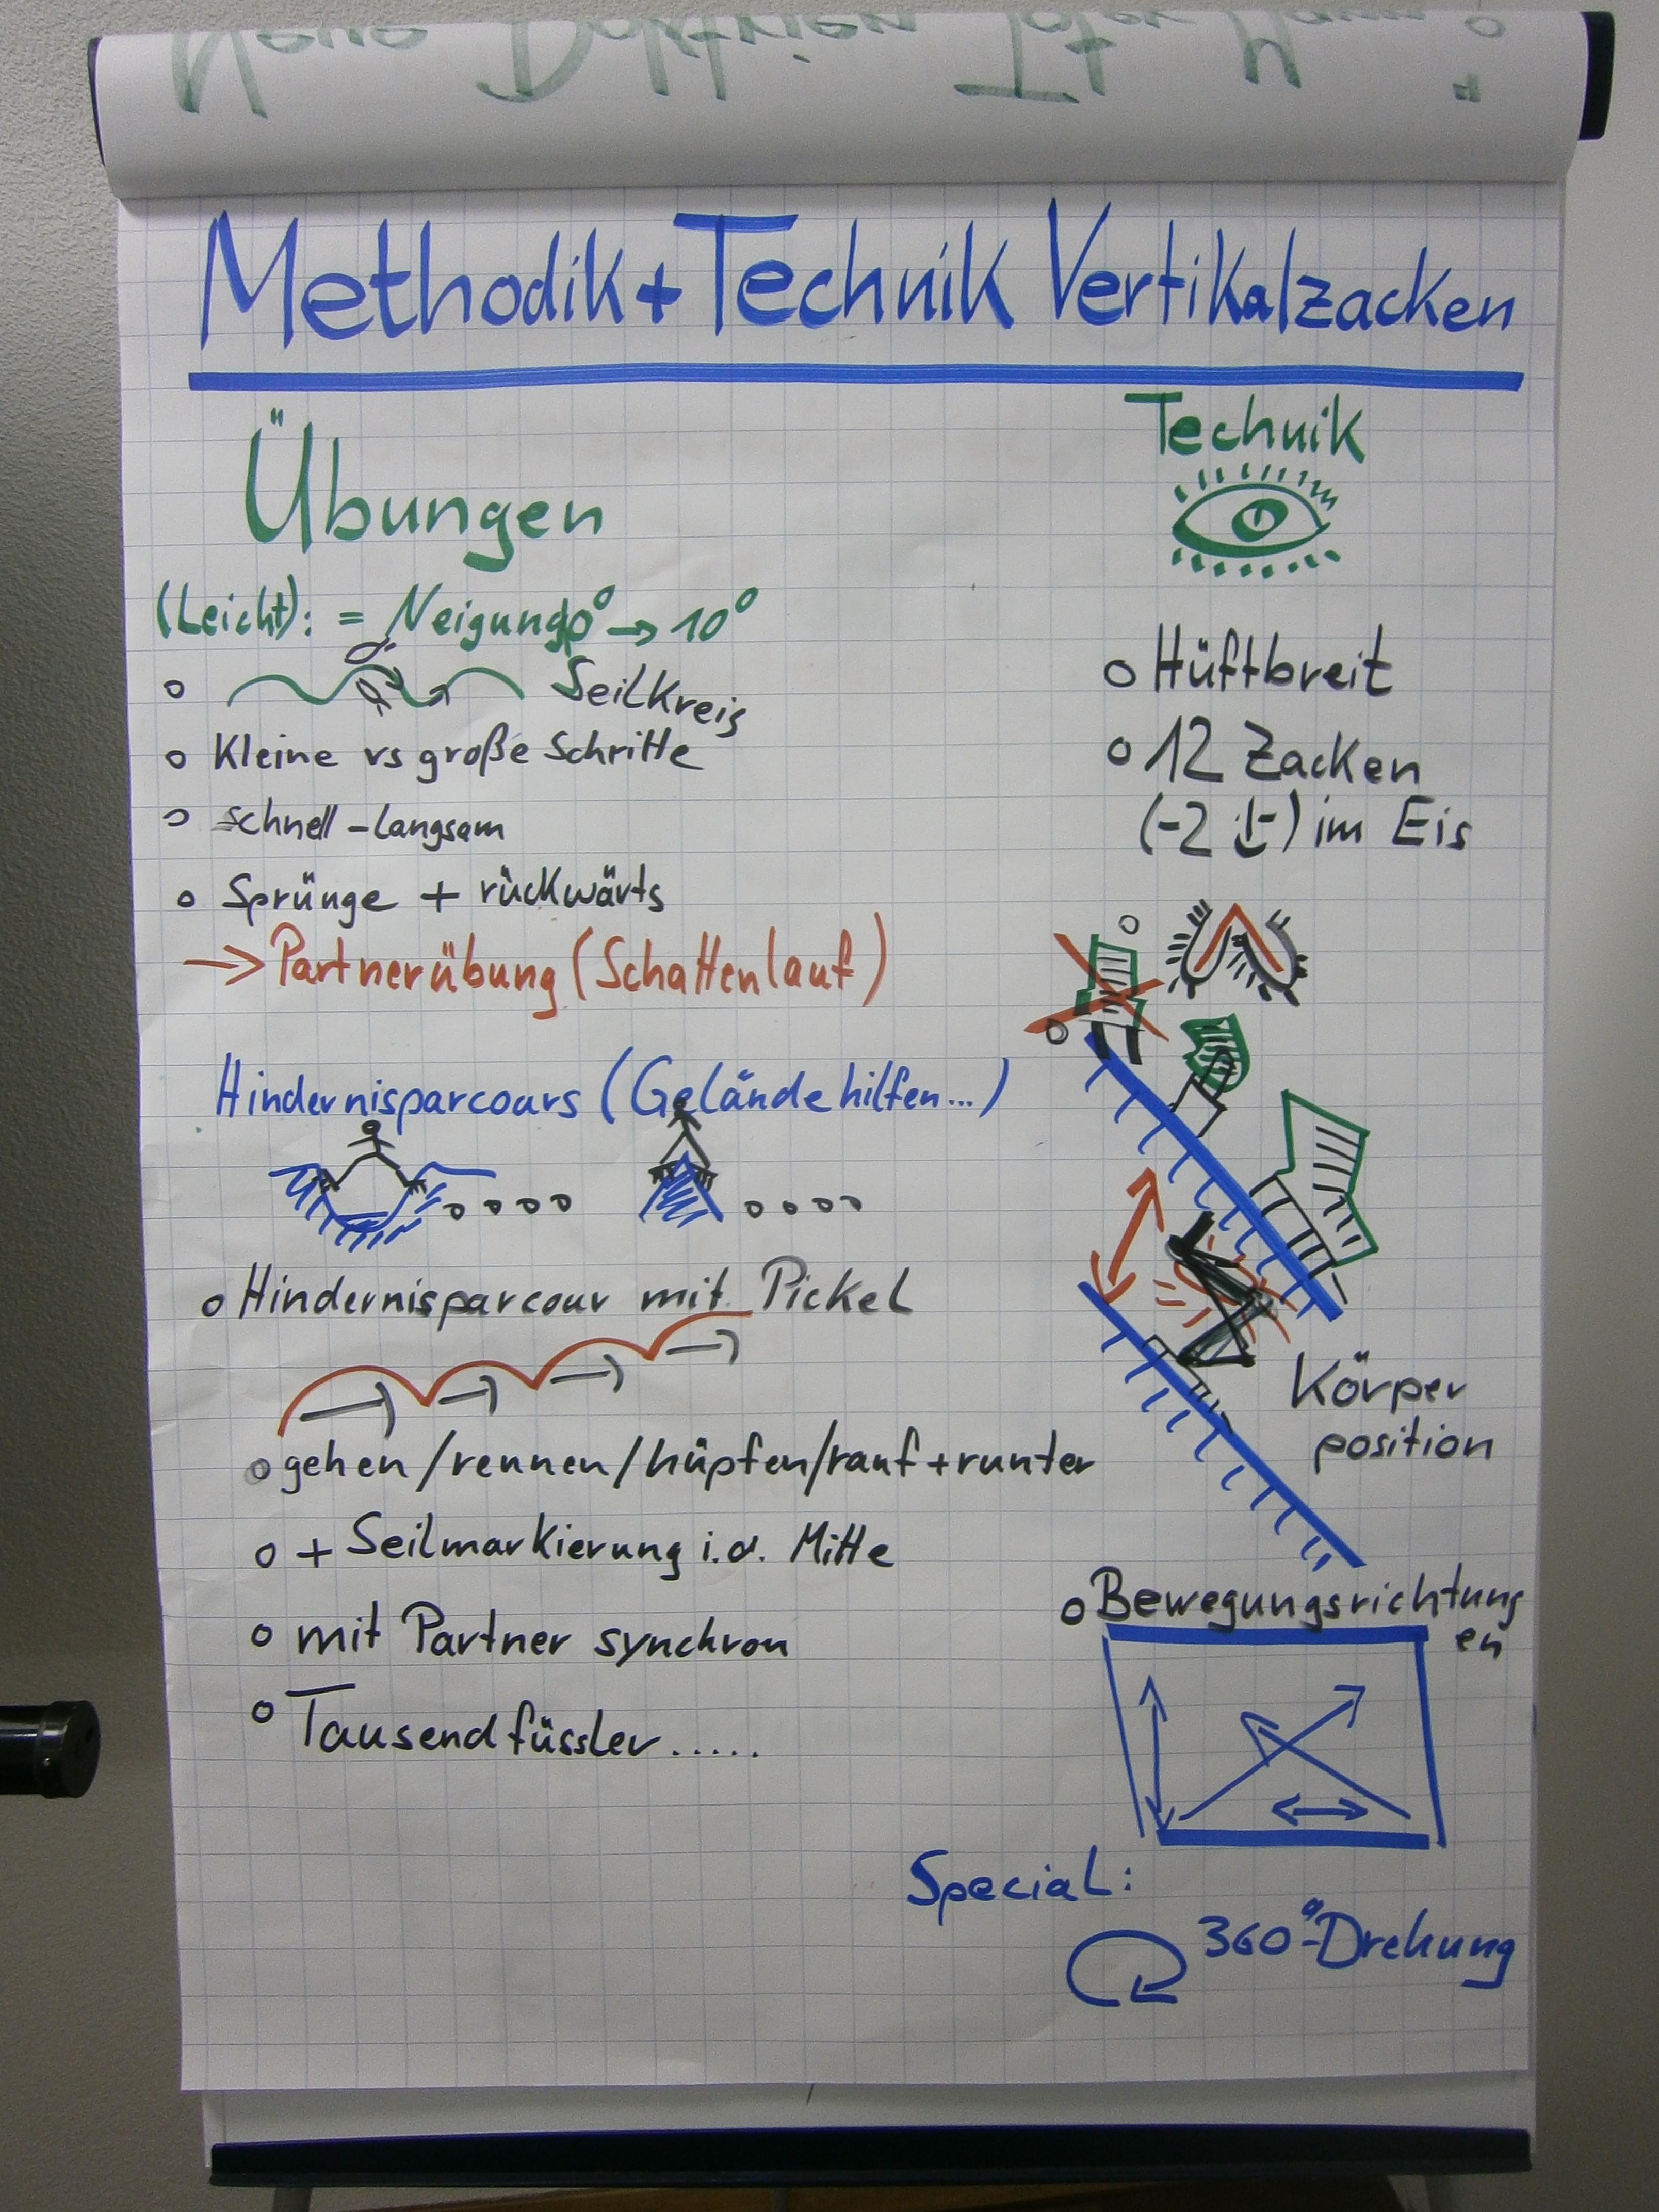 Neue Doktrien Toter Mann:
Methodik + Technik Vertikalzacken
Übungen
(Leicht): = Neigung 0° → 10°
Seilkreis
Kleine vs große Schritte
schnell - langsam
Sprünge + rückwärts
→ Partnerübung (Schattenlauf)
Hindernisparcours (Geländehilfen...)
Hindernisparcour mit Pickel
gehen/rennen/hüpfen/rauf + runter
+ Seilmarkierung i.d. Mitte
mit Partner synchron
Tausendfüssler.....
Technik
Hüftbreit
12 Zacken
(-2 ) im Eis
Körper
position
Bewegungsrichtung
en
Special:
360°-Drehung